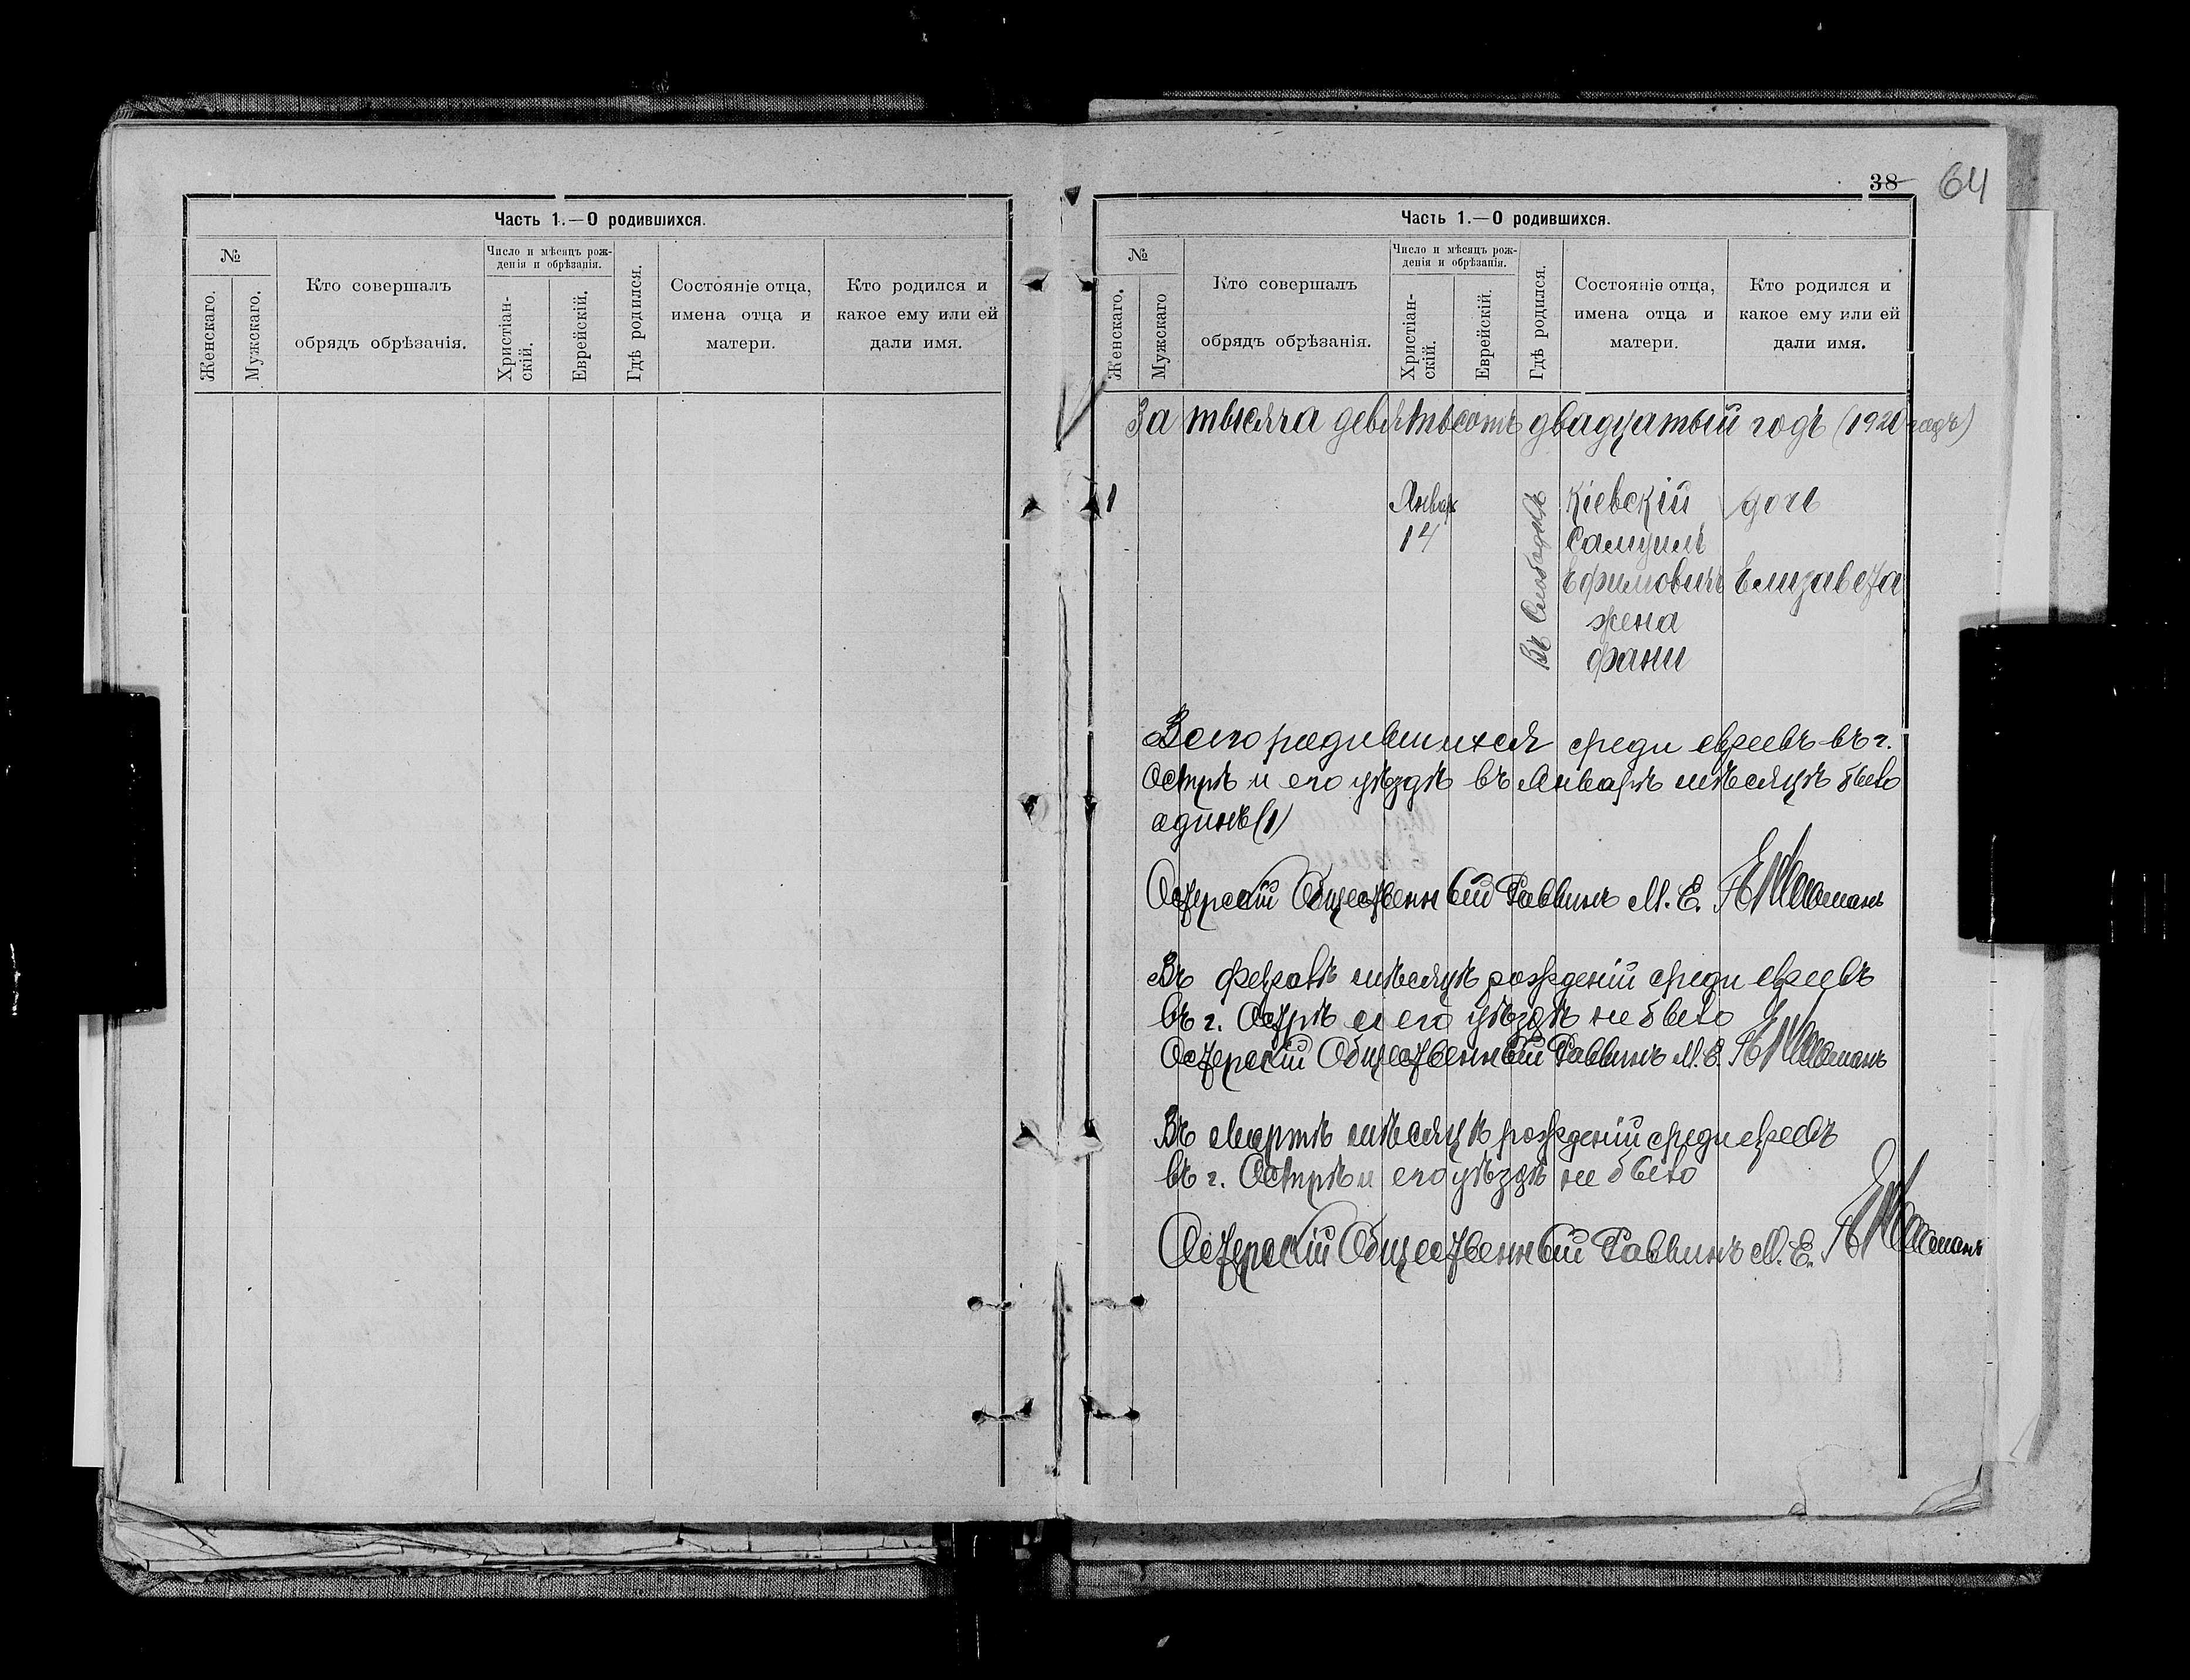 Часть 1.—О родившихся.
№
Женскаго.
Мужскаго.
Кто совершалъ
обрядъ обрѣзанія.
Число и мѣсяцъ рож-
денія и обрѣзанія.
Христіан-
скій.
Еврейскій.
Гдѣ родился.
Состояніе отца,
имена отца и
матери.
Кто родился и
какое ему или ей
дали имя.
38
64
Часть 1.—О родившихся.
№
Женскаго.
Мужскаго
Кто совершалъ
обрядъ обрѣзанія.
Число и мѣсяцъ рож-
денія и обрѣзанія.
Христіан-
скій.
Еврейскій.
Гдѣ родился.
Состояніе отца,
имена отца и
матери.
Кто родился и
какое ему или ей
дали имя.
За тысяча девятьсотъ двадцатый годъ (1920 годъ)
1
Январ
14
Въ Слободкѣ
Кіевскій
Самуилъ
Ефимовичъ
жена
Фани
дочь
Елизавета
Всего родившихся среди евреевъ въ г.
Острѣ и его уѣздѣ въ Январѣ мѣсяцѣ было
адинъ (1)
Остерскій Общественный Раввинъ М. Е.
Въ феврѣ мѣсяцѣ рожденій среди евреевъ
въ г. Острѣ и его уѣздѣ не было
Остерскій Общественный Раввинъ М. Е.
Въ Мартѣ мѣсяцѣ рожденій среди евреевъ
въ г. Острѣ и его уѣздѣ не было
Остерскій Общественный Раввинъ М. Е.